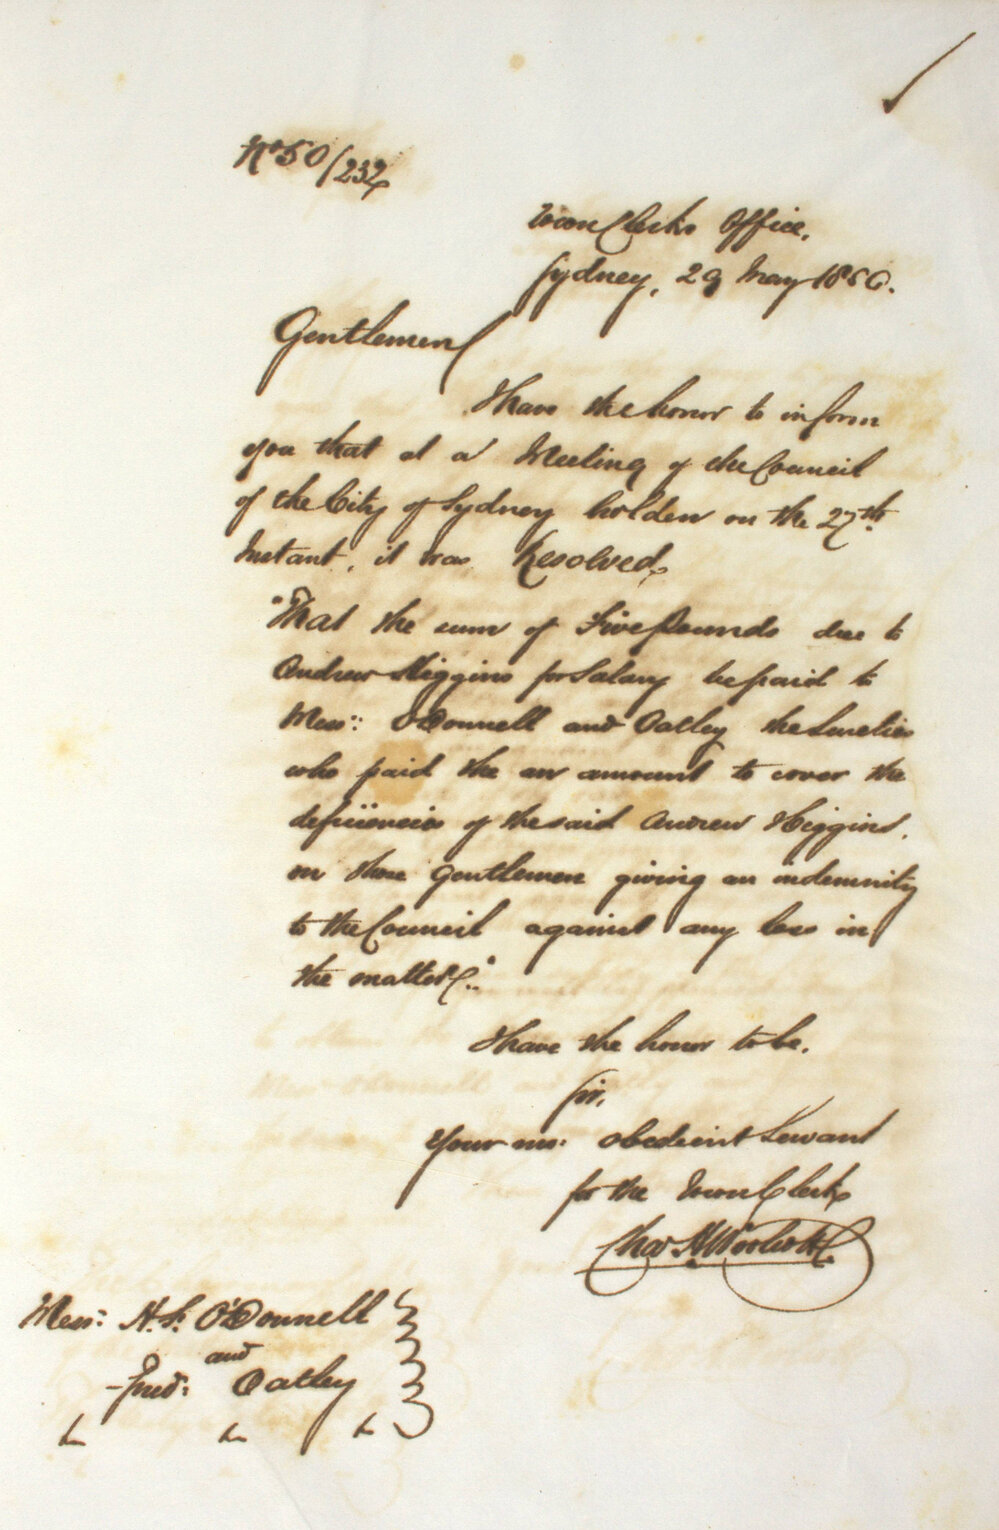 No 50/232
Town Clerks Office,
Sydney, 29 May 1850.
Gentlemen
I have the honor to inform
you that at a Meeting of the Council
of the City of Sydney holden on the 27th.
Instant, it was Resolved,
"That the sum of Five Pounds due to
Andrew Higgins for Salary be paid to
Mess: O'Donnell and Oatley the Sureties
who paid the an amount to cover the
deficiencies of the said Andrew Higgins,
on those Gentlemen giving an indemnity
to the Council against any loss in
the matter."
I have the honor to be,
Sir,
Your mo: obedient Servant
for the Town Clerk
Chas H Woolcott
Mess: N. S. O'Donnell
and
Fred: Oatley